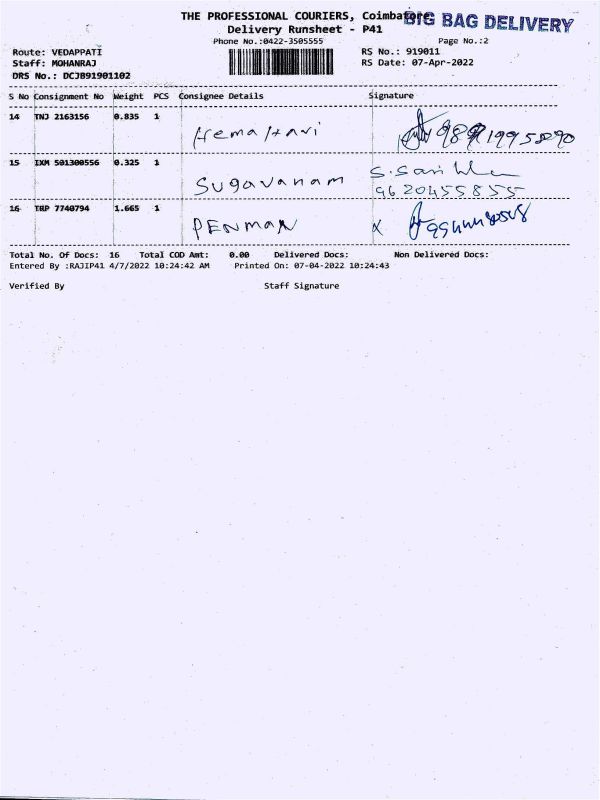 THE PROFESSIONAL COURIERS, Coimbatore
BIG BAG DELIVERY
Delivery Runsheet - P41
Phone No.:0422-3505555
Page No.:2
Route: VEDAPPATI
RS No.: 919011
Staff: MOHANRAJ
RS Date: 07-Apr-2022
DRS No.: DCJB91901102
S No Consignment No Weight PCS Consignee Details Signature
14 TNJ 2163156 0.835 1
Hema Havi
15 IXM 501300556 0.325 1
Sugavanam
9620455855
16 TRP 7740794 1.665 1
PENMAN X
Total No. Of Docs: 16 Total COD Amt: 0.00 Delivered Docs: Non Delivered Docs:
Entered By :RAJIP41 4/7/2022 10:24:42 AM Printed On: 07-04-2022 10:24:43
Verified By Staff Signature